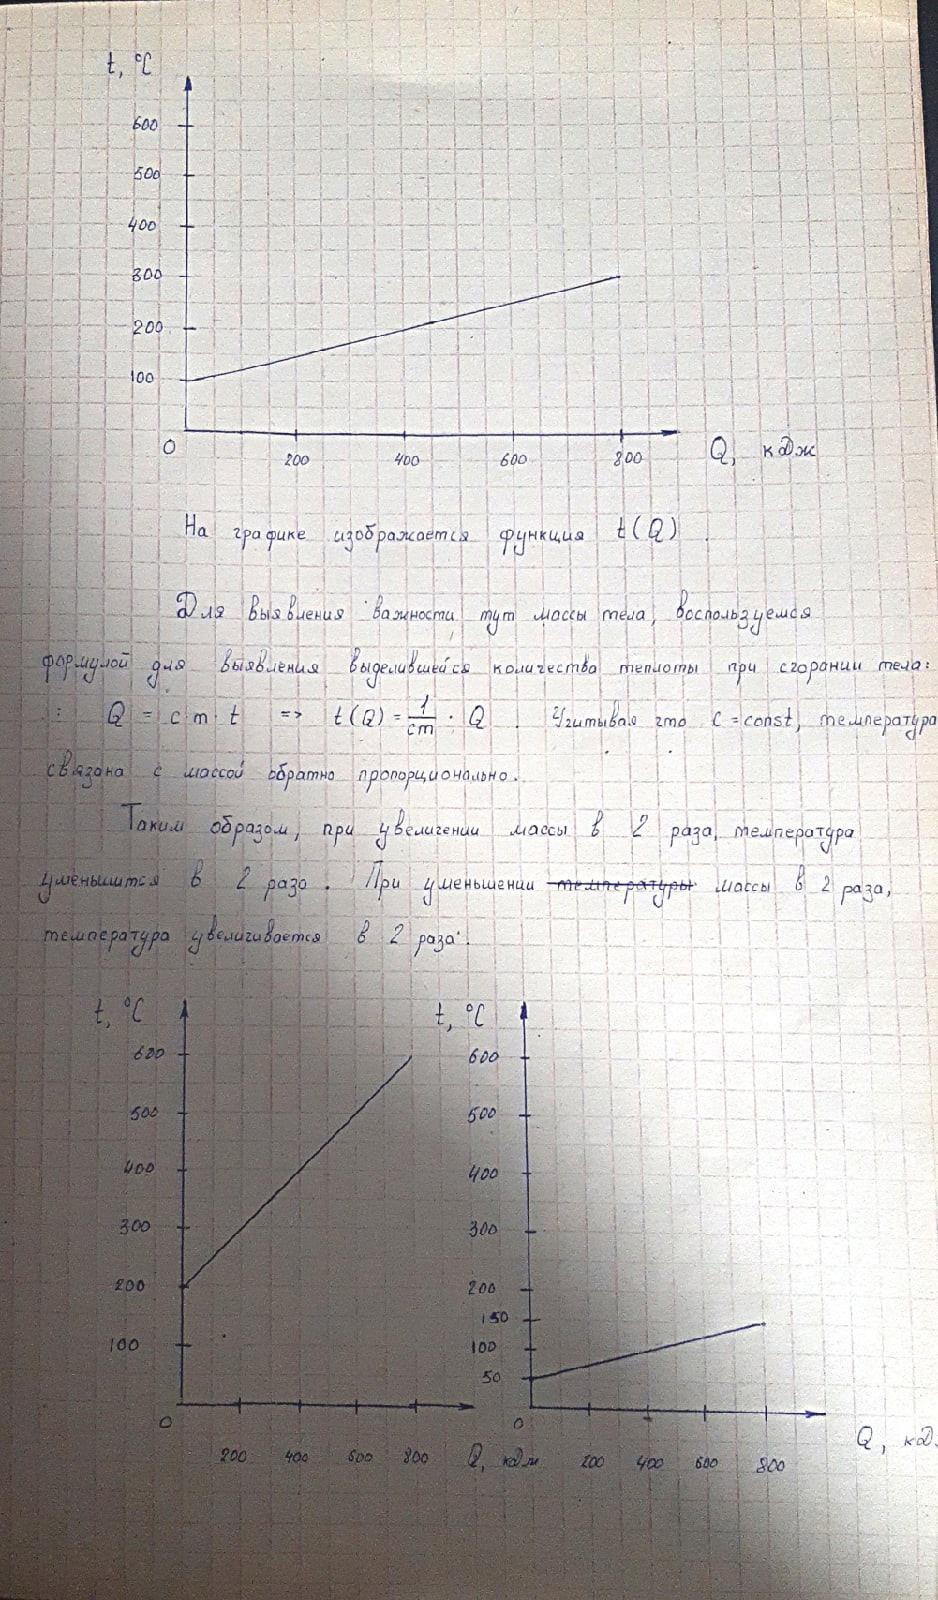 t, °C
600
500
400
300
200
100
0
200 400 600 800 Q, кДж
На графике изображается функция t(Q)
Для выявления важности тут массы тела, воспользуемся
формулой для выявления выделившейся количества теплоты при сгорании тела:
: Q = c m · t => t(Q) = 1/cm · Q . Учитывая что C = const, температура
связана с массой обратно пропорционально.
Таким образом, при увеличении массы в 2 раза, температура
уменьшится в 2 раза. При уменьшении температуры массы в 2 раза,
температура увеличивается в 2 раза.
t, °C
600
500
400
300
200
100
0
200 400 600 800 Q, кДж
t, °C
600
500
400
300
200
150
100
50
0
200 400 600 800
Q, кД